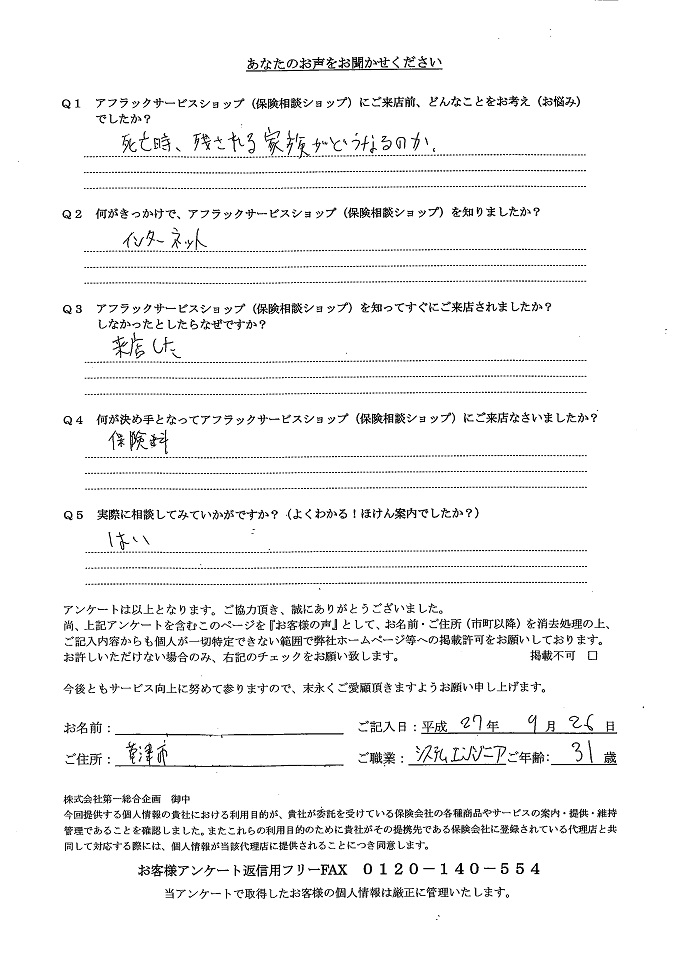 あなたのお声をお聞かせください
Q１ アフラックサービスショップ（保険相談ショップ）にご来店前、どんなことをお考え（お悩み）
でしたか？
死亡時、残される家族がどうなるのか。
Q２ 何がきっかけで、アフラックサービスショップ（保険相談ショップ）を知りましたか？
インターネット
Q３ アフラックサービスショップ（保険相談ショップ）を知ってすぐにご来店されましたか？
しなかったとしたらなぜですか？
来店した
Q４ 何が決め手となってアフラックサービスショップ（保険相談ショップ）にご来店なさいましたか？
保険料
Q５ 実際に相談してみていかがですか？（よくわかる！ほけん案内でしたか？）
はい
アンケートは以上となります。ご協力頂き、誠にありがとうございました。
尚、上記アンケートを含むこのページを『お客様の声』として、お名前・ご住所（市町以降）を消去処理の上、
ご記入内容からも個人が一切特定できない範囲で弊社ホームページ等への掲載許可をお願いしております。
お許しいただけない場合のみ、右記のチェックをお願い致します。 掲載不可 □
今後ともサービス向上に努めて参りますので、末永くご愛顧頂きますようお願い申し上げます。
お名前： ご記入日：平成 27年 9月 26日
ご住所： 草津市 ご職業： システムエンジニア ご年齢： 31歳
株式会社第一総合企画 御中
今回提供する個人情報の貴社における利用目的が、貴社が委託を受けている保険会社の各種商品やサービスの案内・提供・維持
管理であることを確認しました。またこれらの利用目的のために貴社がその提携先である保険会社に登録されている代理店と共
同して対応する際には、個人情報が当該代理店に提供されることにつき同意します。
お客様アンケート返信用フリーFAX ０１２０－１４０－５５４
当アンケートで取得したお客様の個人情報は厳正に管理いたします。